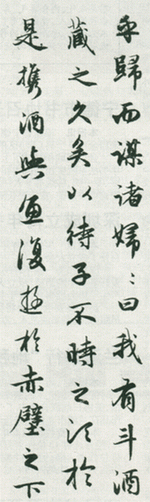 乎歸而謀諸婦〻曰我有斗酒
藏之久矣以待子不時之須於
是攜酒與魚復遊於赤壁之下